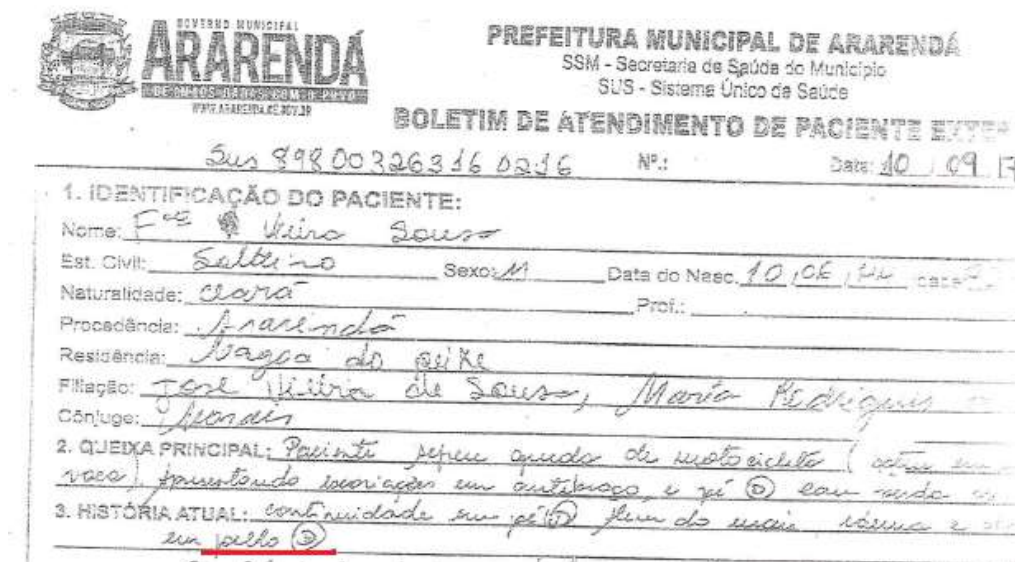 GOVERNO MUNICIPAL
ARARENDÁ
DE MÃOS DADAS COM O POVO
WWW.ARARENDA.CE.GOV.BR
PREFEITURA MUNICIPAL DE ARARENDÁ
SSM - Secretaria de Saúde do Município
SUS - Sistema Único de Saúde
BOLETIM DE ATENDIMENTO DE PACIENTE EXTER
Sus 898 00326316 0216 Nº.: Data: 10 / 09 / 17
1. IDENTIFICAÇÃO DO PACIENTE:
Nome: Fco Vieira Sousa
Est. Civil: Solteiro Sexo: M Data do Nasc. 10 / 06 /
Naturalidade: Ceará Prof.:
Procedência: Ararendá
Residência: Lagoa do peixe
Filiação: José Vieira de Sousa, Maria Rodrigues
Cônjuge:
2. QUEIXA PRINCIPAL: Paciente queda de motocicleta (
vaca), apresentando escoriações em antebraço, e pé (D) com
3. HISTÓRIA ATUAL: continuidade em pé (D)
em joelho (D)